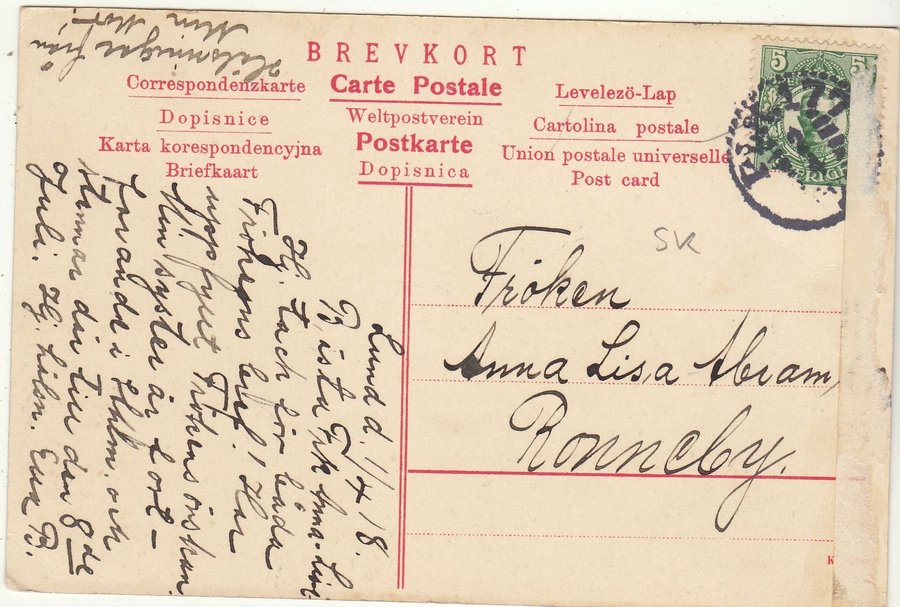 BREVKORT
Correspondenzkarte
Carte Postale
Levelezö-Lap
Dopisnice
Weltpostverein
Cartolina postale
Karta korespondencyjna
Postkarte
Union postale universelle
Briefkaart
Dopisnica
Post card
5 5
SK
Fröken
Anna Lisa Abram
Ronneby.
K
Lund d. 1/4 18.
Bästa Frk Anna-Lisa
Hj. tack för båda
Frökens bref! Har
uppfyllt Frökens önskan
Min syster är bort-
Sthlm. och
stannar där till den 8de
Juli. Hj. hälsn. Elsa B.
Hälsningar från
Min Mor.